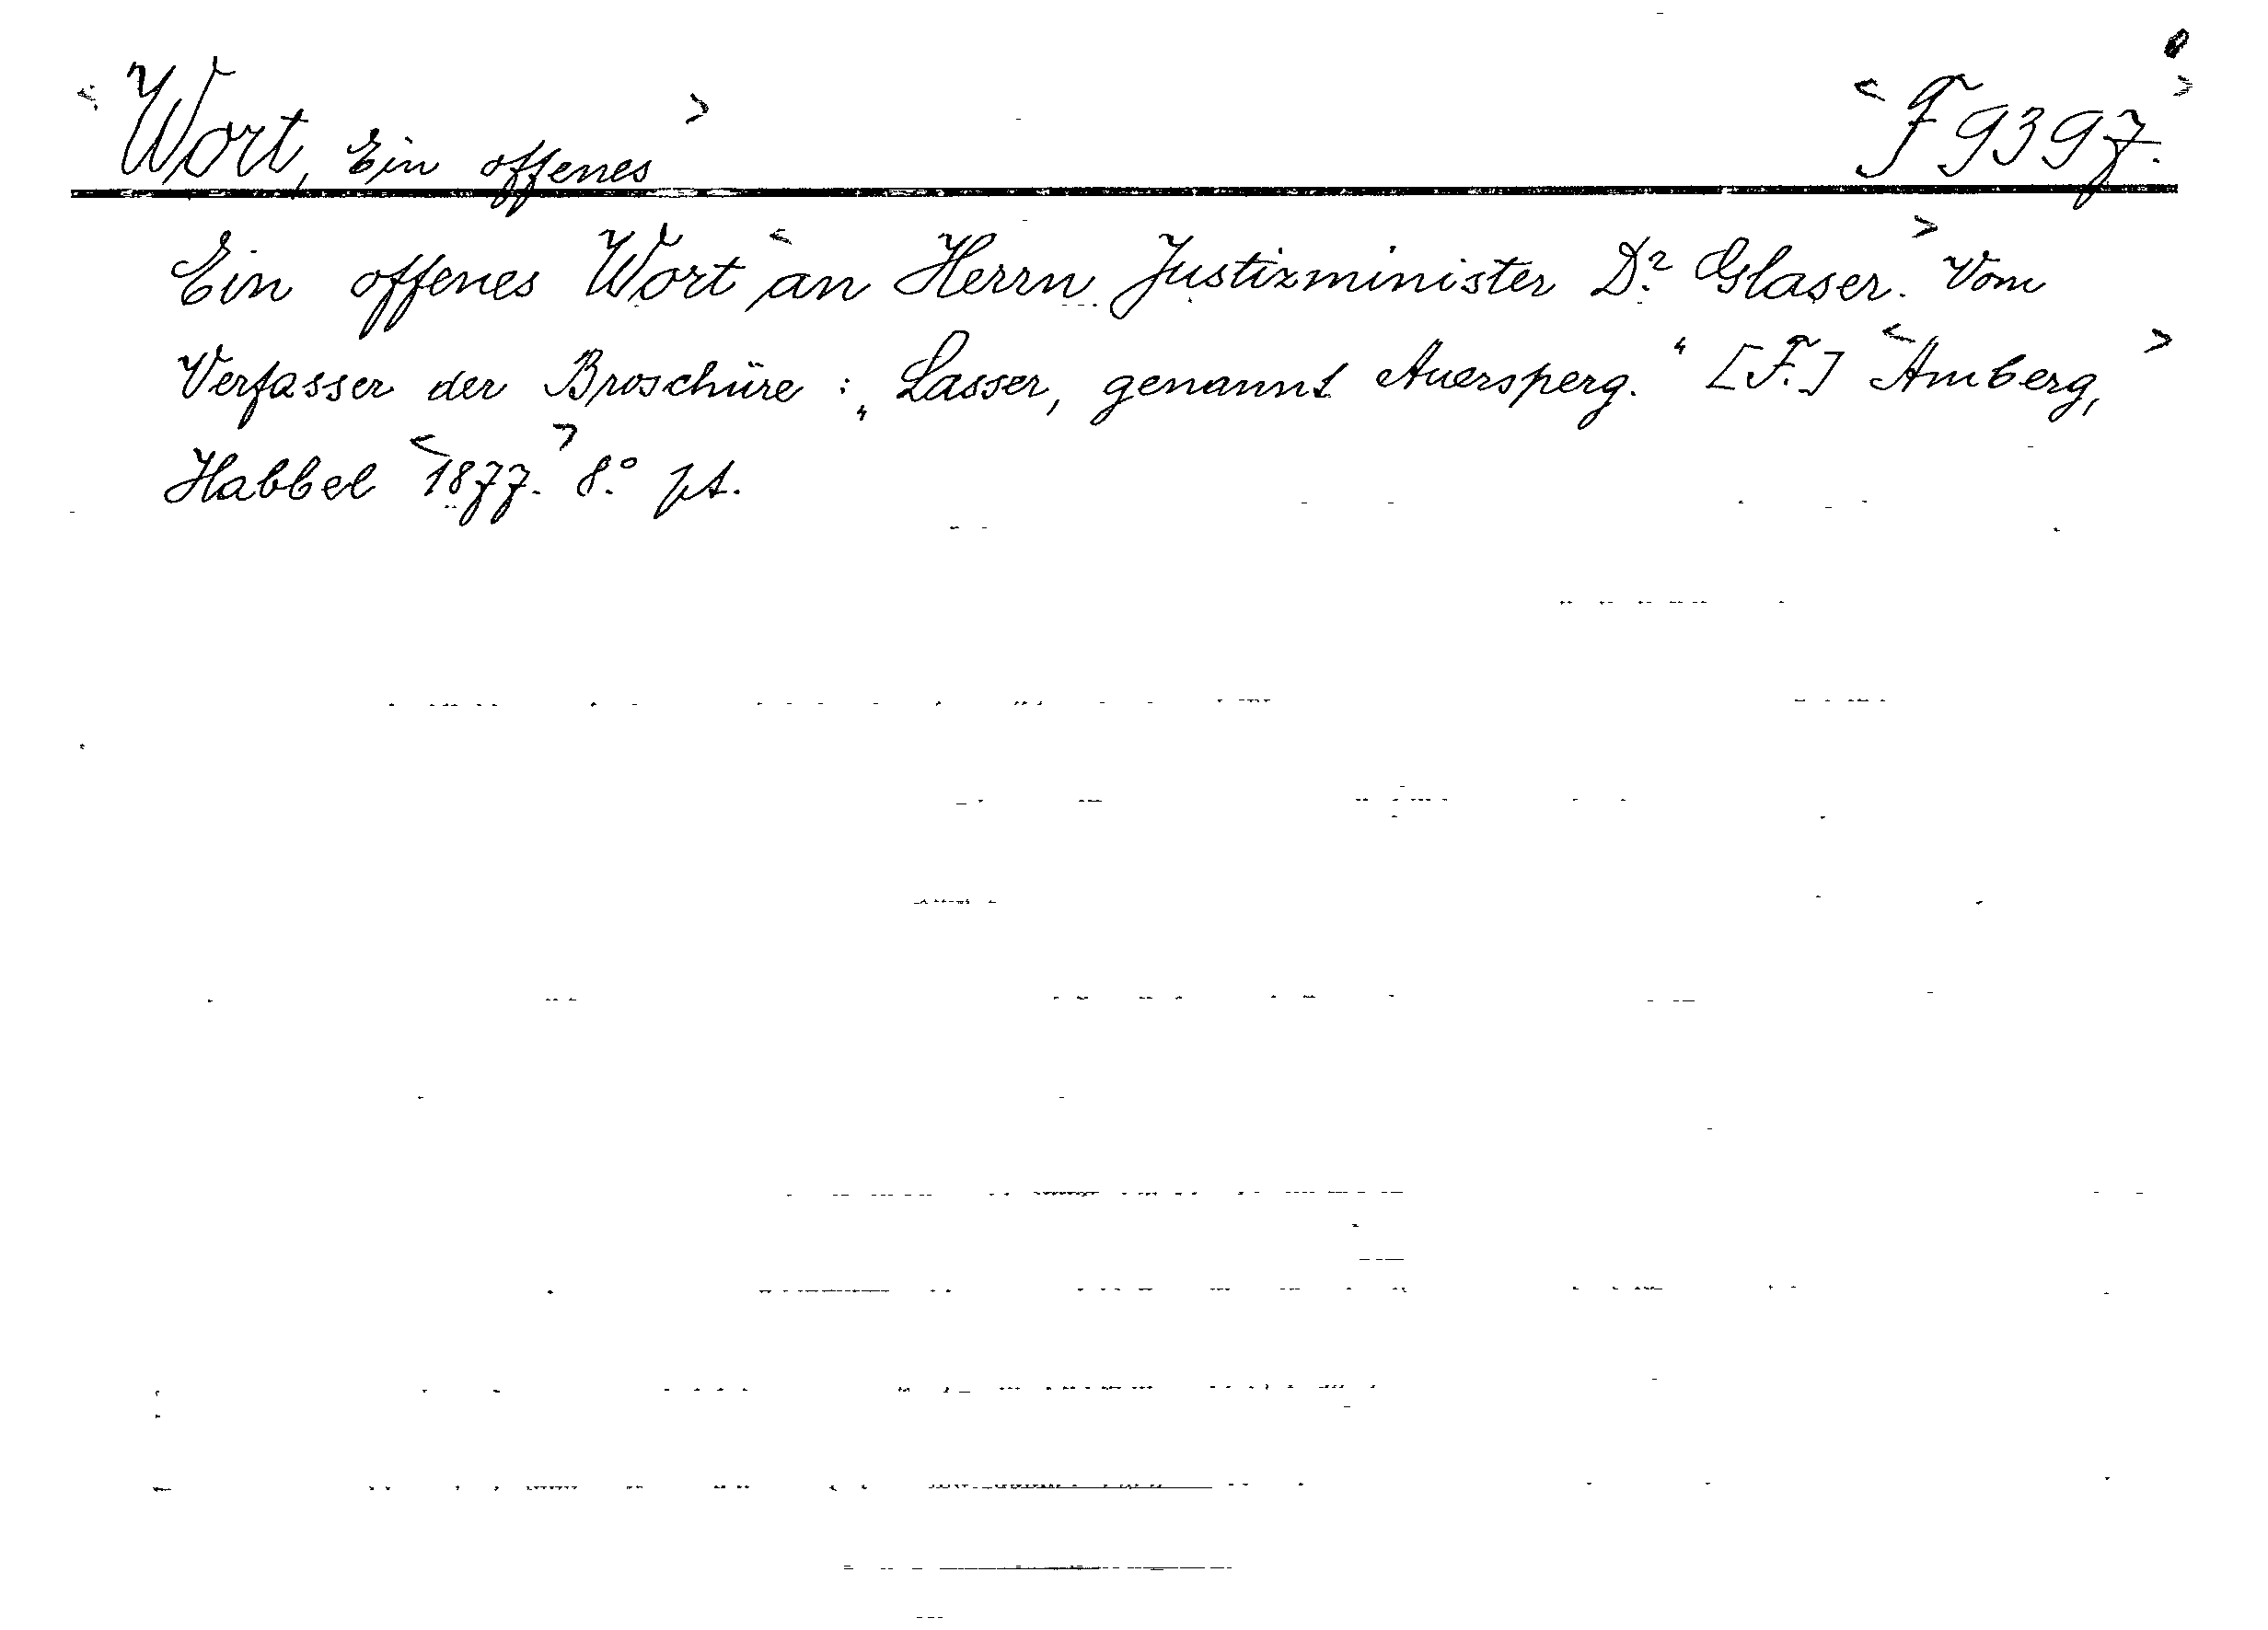 <Wort, Ein offenes> <F 9397.>
Ein offenes Wort <an Herrn Justizminister Dr. Glaser.> Vom
Verfasser der Broschüre: „Lasser, genannt Auersperg.“ [F.] <Amberg,>
Habbel <1877.> 8.° pt.